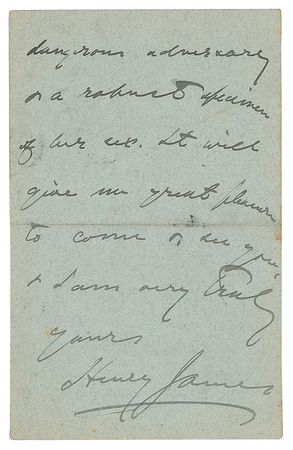 dangerous adversary
or a robust specimen
of her sex. It will
give me great pleasure
to come & see you,
& I am very truly
yours
Henry James